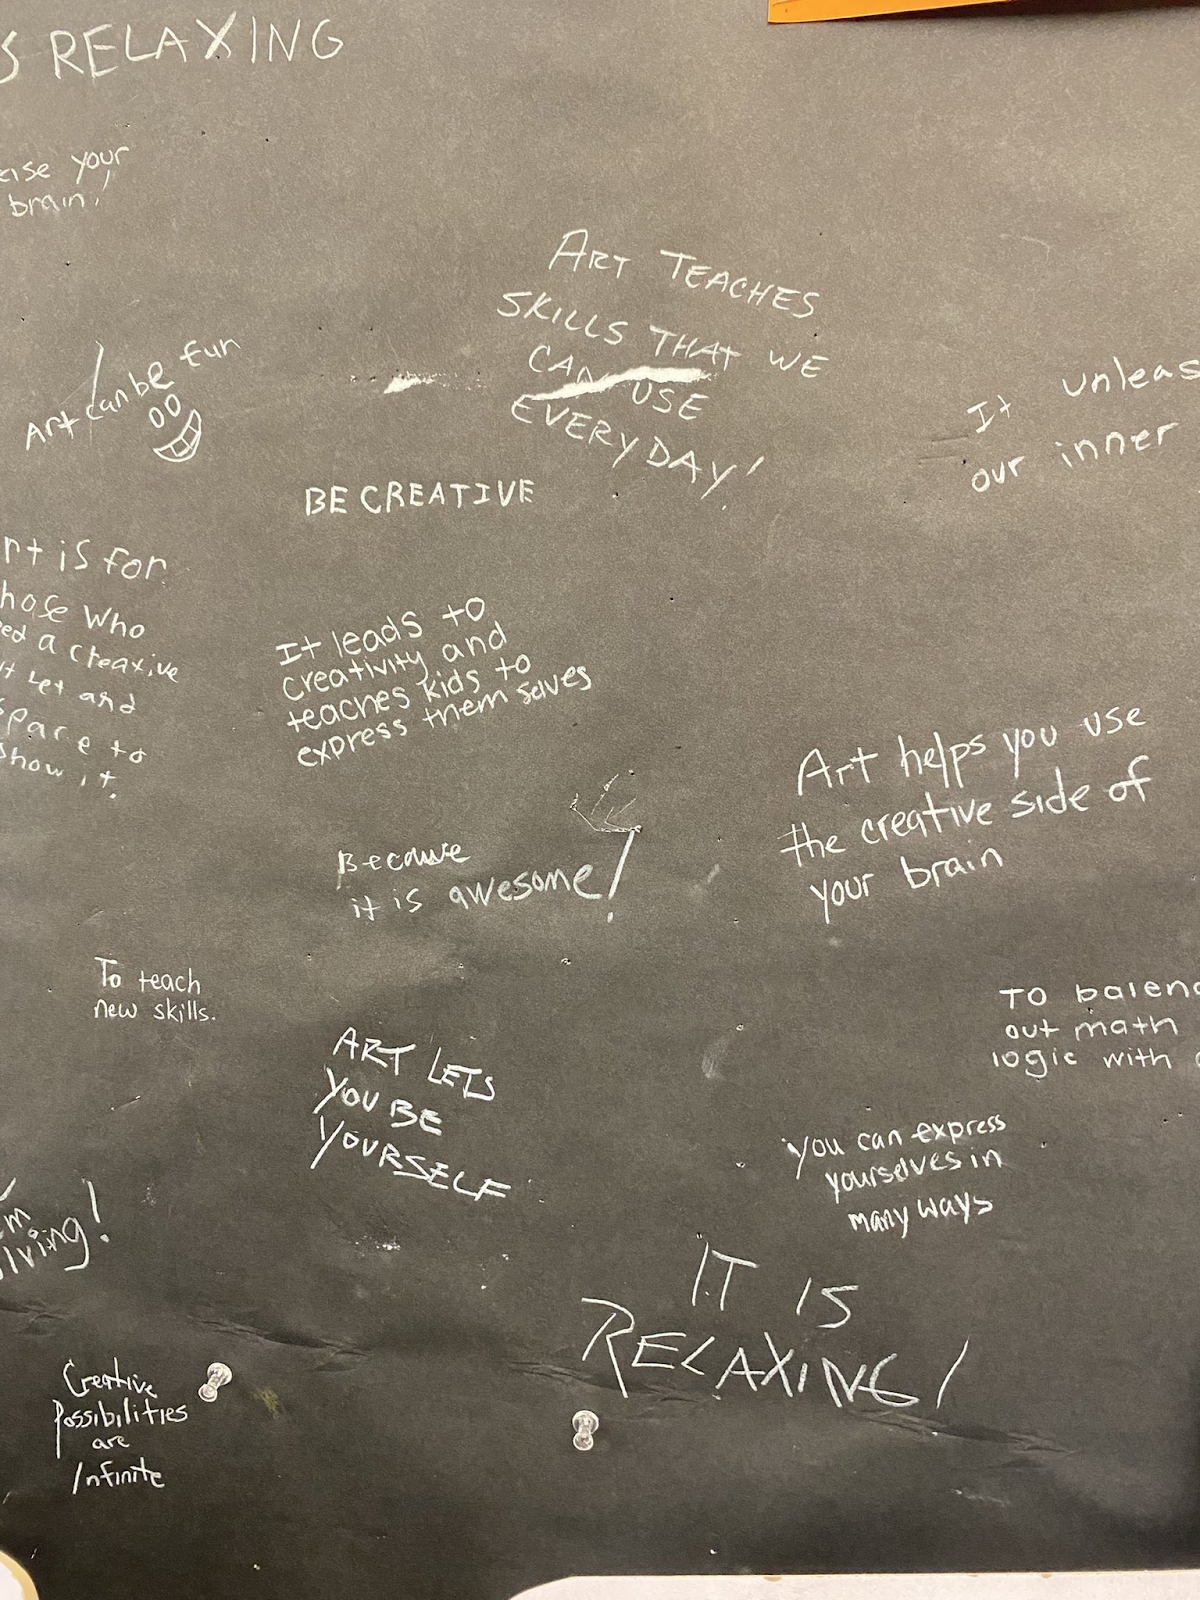 RELAXING
your
brain!
ART TEACHES
SKILLS THAT WE
CAN USE
EVERYDAY!
Art can be fun
It unleas
our inner
BE CREATIVE
rt is for
hose Who
ed a creative
t Let and
space to
show it.
It leads to
creativity and
teaches kids to
express them selves
Art helps you use
the creative side of
your brain
Because
it is awesome!
To teach
new skills.
TO balenc
out math
logic with
ART LETS
YOU BE
YOURSELF
you can express
yourselves in
many ways
lving!
IT IS
RELAXING!
Creative
Possibilities
are
Infinite